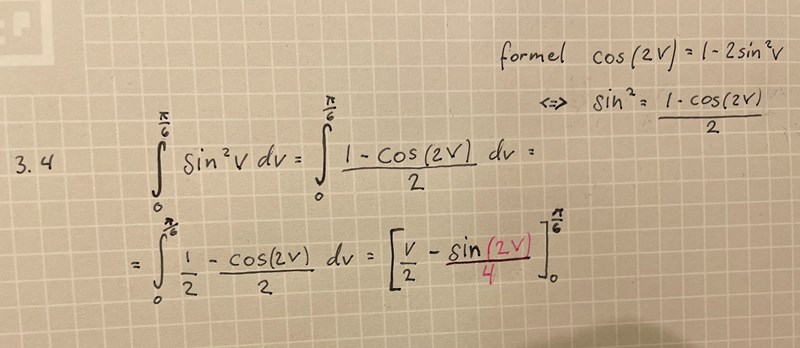 formel cos(2v) = 1 - 2sin²v
<=> sin² = \frac{1 - cos(2v)}{2}
3.4 \int_0^{\frac{π}{6}} sin²v dv = \int_0^{\frac{π}{6}} \frac{1 - cos(2v)}{2} dv =
= \int_0^{\frac{π}{6}} \frac{1}{2} - \frac{cos(2v)}{2} dv = [\frac{v}{2} - \frac{sin(2v)}{4}]_0^{\frac{π}{6}}